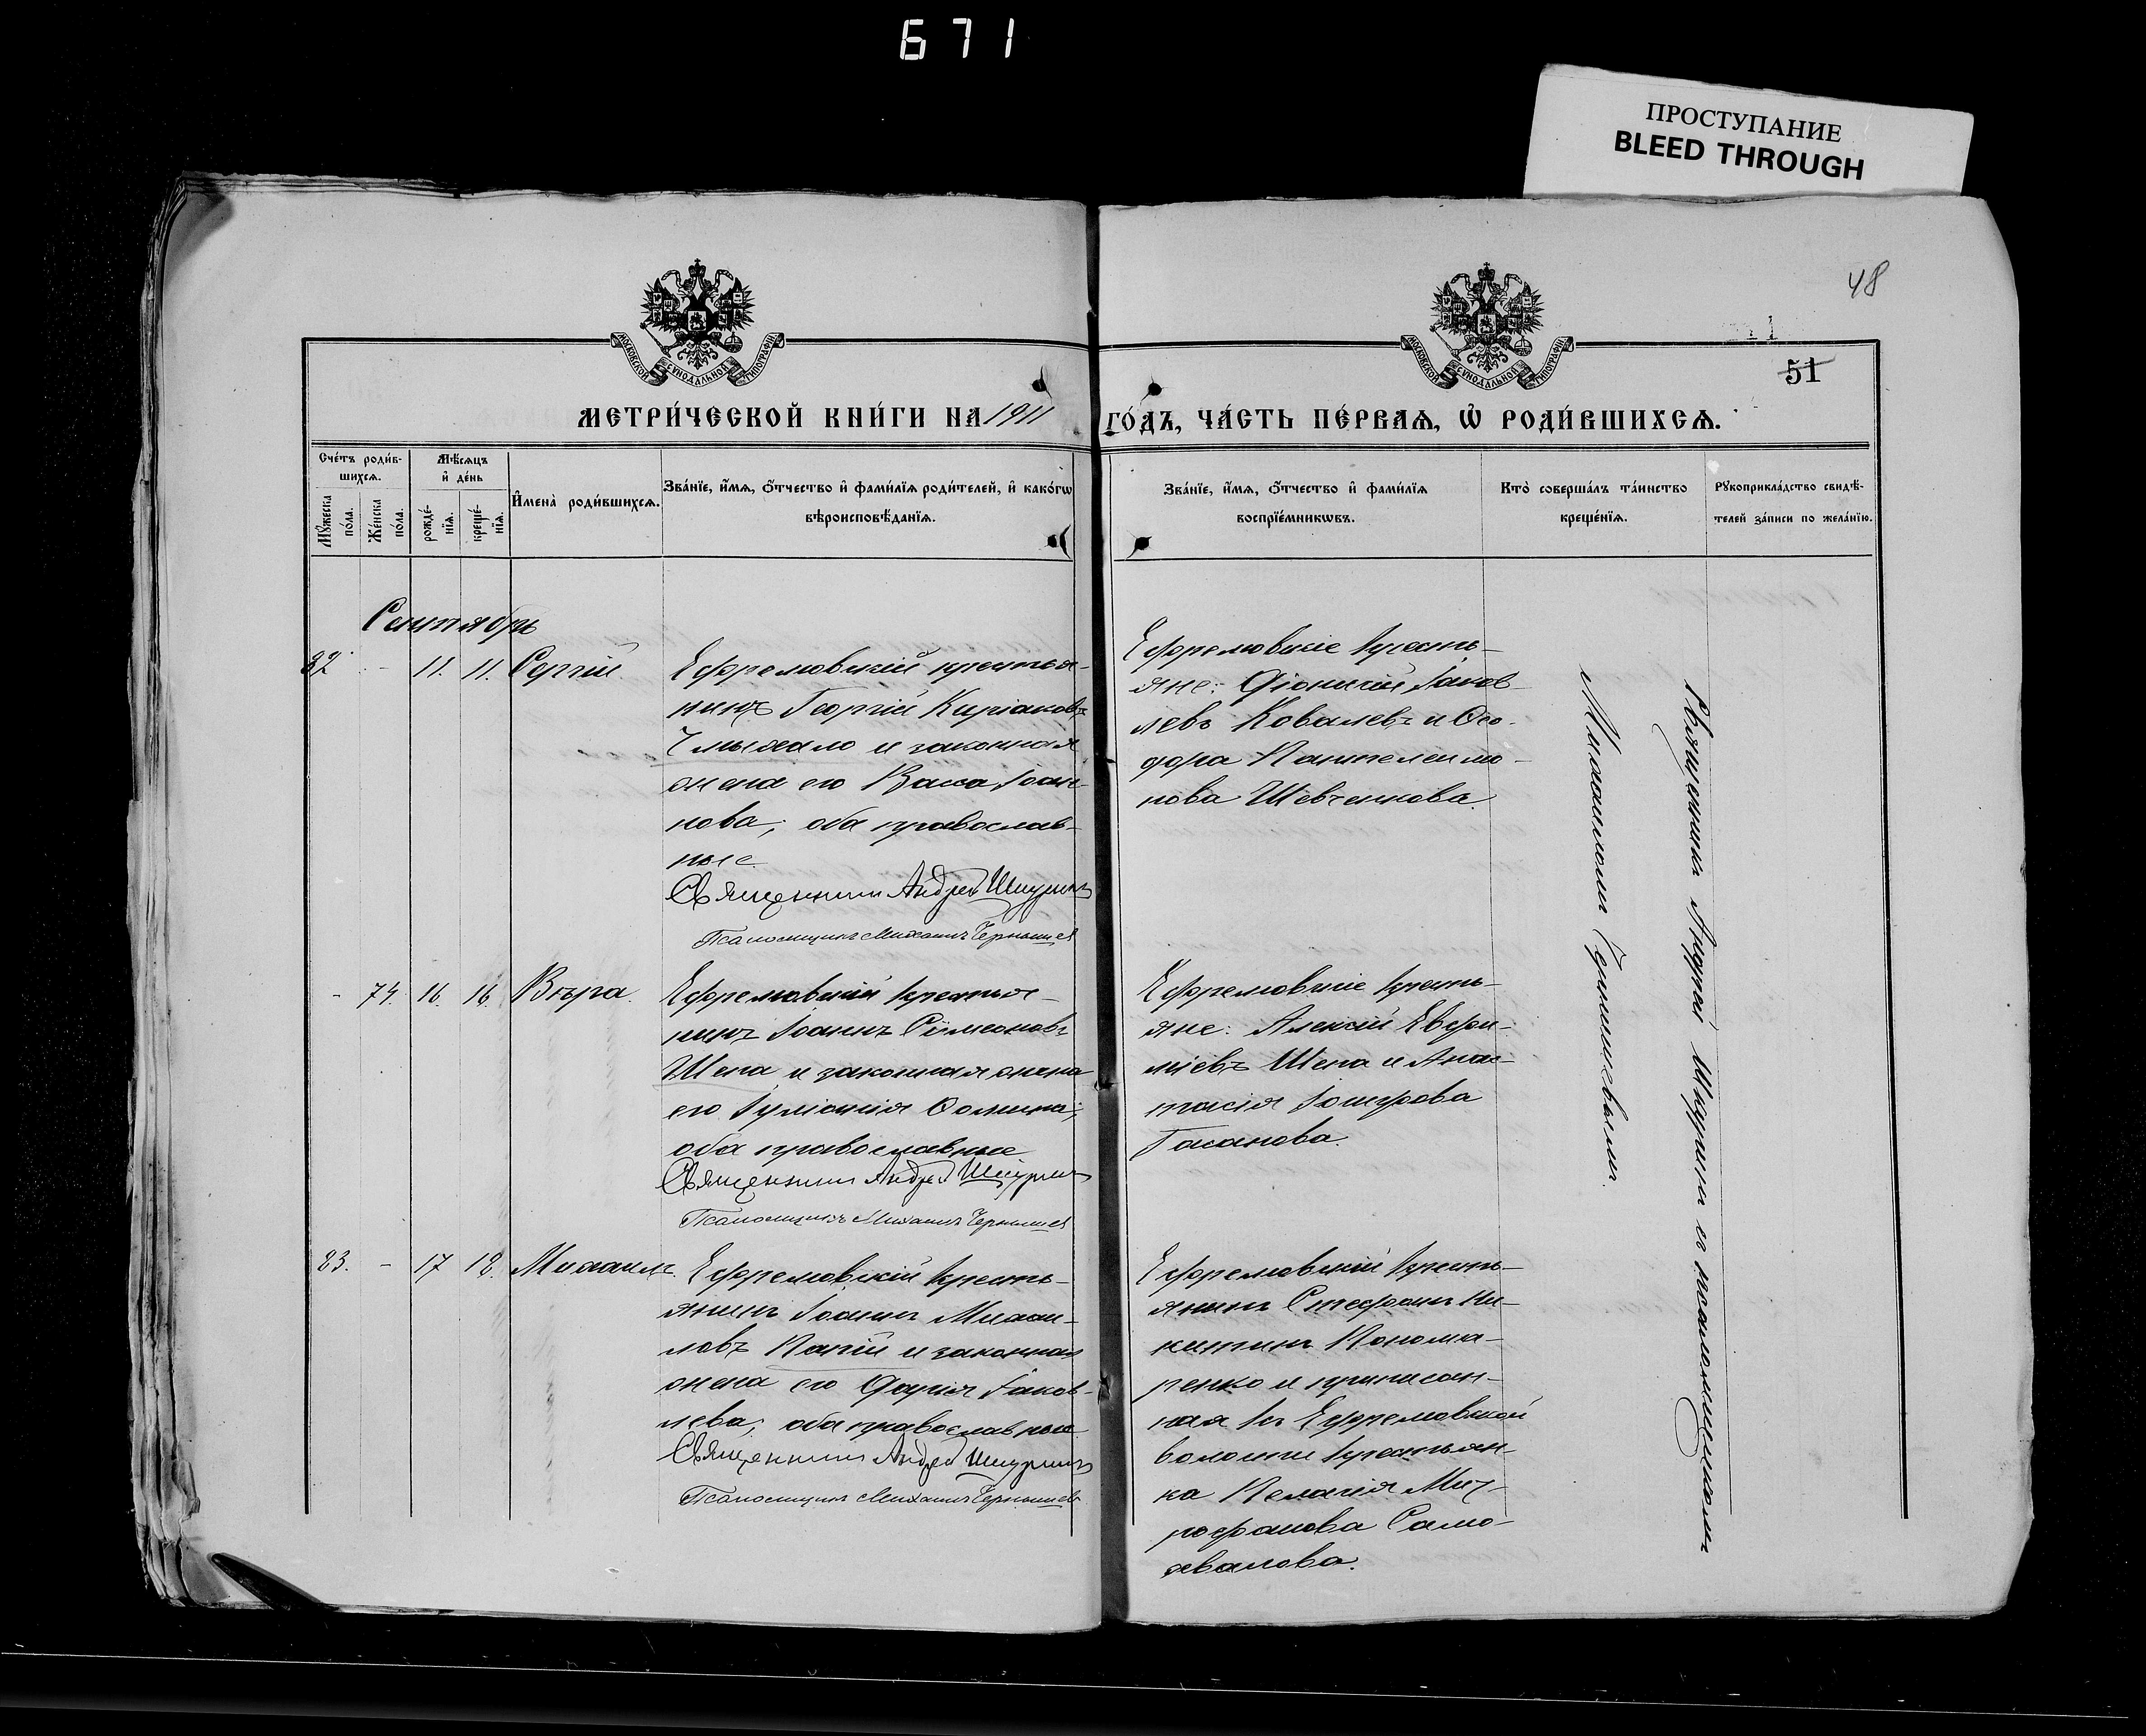 671
ПРОСТУПАНИЕ
BLEED THROUGH
48
51
МОСКОВСКОЙ СѴНОДАЛЬНОЙ ТИПОГРАФІИ
МОСКОВСКОЙ СѴНОДАЛЬНОЙ ТИПОГРАФІИ
МЕТРИ́ЧЕСКОЙ КНИ́ГИ НА 1911 ГО́ДЪ, ЧА́СТЬ ПЕ́РВАѦ, Ѡ҆ РОДИ́ВШИХСѦ.
Сче́тъ роди́в-
шихсѧ.
Мꙋ́жеска по́ла.
Же́нска по́ла.
Мѣ́сѧцъ
и҆ де́нь
рожде́-
нїѧ.
креще́-
нїѧ.
И҆мена̀ роди́вшихсѧ.
Зва́нїе, и҆́мѧ, ѻ҆́тчество и҆ фами́лїѧ роди́телей, и҆ како́гѡ
вѣроисповѣ́данїѧ.
Зва́нїе, и҆́мѧ, ѻ҆́тчество и҆ фами́лїѧ
воспрїе́мникѡвъ.
Кто̀ соверша́лъ та́инство
креще́нїѧ.
Рꙋкоприкла́дство свидѣ́-
телей за́писи по жела́нїю.
Сентябрь
82 - 11. 11. Сергій.
Ефремовскій крестья-
нинъ Георгій Киріаковъ
Чмыхало и законная
жена его Васса Іоан-
нова; оба православ-
ные
Священникъ Андрей Шкуринъ
Псаломщикъ Михаилъ Чернышев
Ефремовскіе кресть-
яне: Діонисій Іаков-
левъ Ковалевъ и Ѳео-
дора Пантелеимо-
нова Шевченкова.
- 74. 16. 16. Вѣра.
Ефремовскій крестья-
нинъ Іоаннъ Сѵмеоновъ
Шепа и законная жена
его Іуліанія Ѳомина;
оба православные
Священникъ Андрей Шкуринъ
Псаломщикъ Михаилъ Чернышев
Ефремовскіе кресть-
яне: Алексій Евфи-
міевъ Шепа и Анас-
тасія
83. - 17 18. Михаилъ.
Ефремовскій кресть-
янинъ Іоаннъ Михаи-
ловъ Капій и законная
жена его Дарія Іаков-
лева; оба православные.
Священникъ Андрей Шкуринъ
Псаломщикъ Михаилъ Чернышев
Ефремовскій кресть-
янинъ Стефанъ Ни-
китинъ Пономa-
ренко и приписан-
ная къ Ефремовской
волости крестьян-
ка Пелагія Мит-
рофанова Само-
хвалова.
Священникъ Андрей Шкуринъ съ псаломщикомъ
Михаиломъ Чернышевымъ.